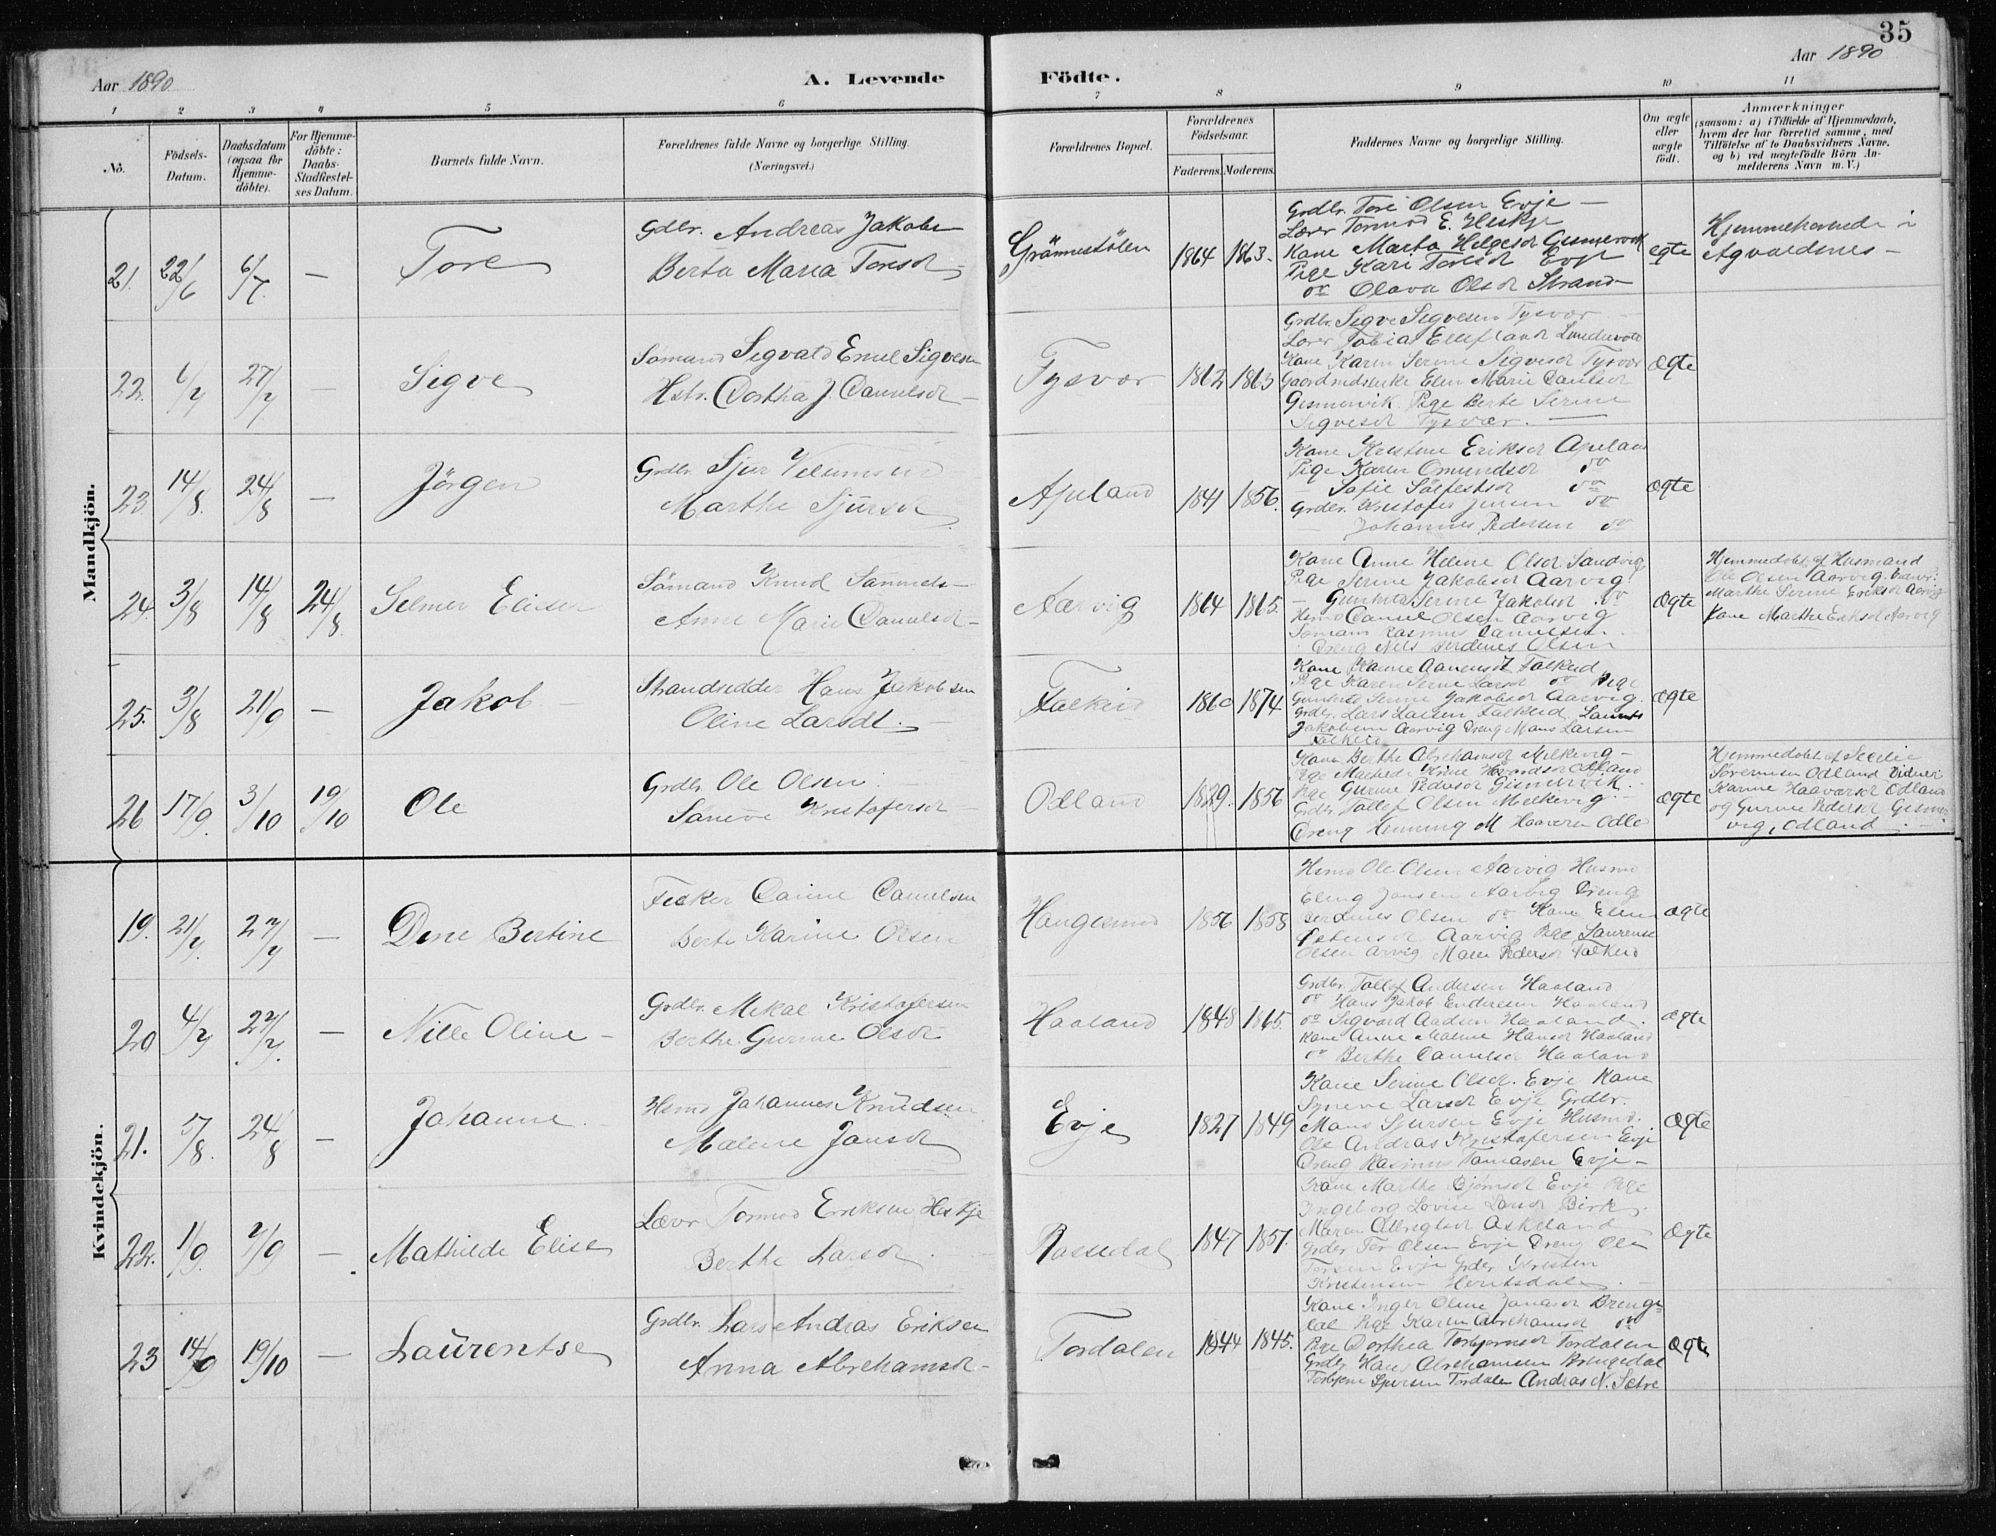 35
Aar 1890
A. Levende Födte.
Aar 1890
1 2 3 4 5 6 7 8 9 10 11
No.
Födsels-
Datum.
Daabsdatum
(ogsaa for
Hjemme-
döbte).
For Hjemme-
döbte:
Daabs-
Stadfæstel-
ses Datum.
Barnets fulde Navn.
Forældrenes fulde Navne og borgerlige Stilling.
(Næringsvei.)
Forældrenes Bopæl.
Forældrenes
Födselsaar.
Faderens. Moderens.
Faddernes Navne og borgerlige Stilling.
Om ægte
eller
uægte
født.
Anmærkninger
(saasom: a) i Tilfælde af Hjemmedaab,
hvem der har forrettet samme, med
Tilföielse af to Daabsvidners Navne,
og b) ved uægtefödte Börn An-
melderens Navn m. V.)
Mandkjön.
21. 22/6 6/7. — Tore
Gdbr. Andreas Jakobs
Berta Maria Toresdr
1864 1863.
Grdbr. Tore Olsen Evje —
Lærer Tormod E. Heskje
Kane Marta Helgesdr
Pige Kari Toresdr Evje
do Olava Olsdr Strand
ægte
Hjemmehørende i
Agvaldsnes —
22. 6/7 27/7 — Sigve
Sömand Sigvald Emel Sigvesen
Hstr. Dortha J. Danielsdr
Tysvær 1862 1863
Grdbr. Sigve Sigvesen Tysvær
Kane Karen Serine Sigvesdr Tysvær
Elen Marie Danielsdr
Gismervik. Pige Berte Serine
Sigvesdr Tysvær.
Ægte
23. 14/8. 24/8 — Jörgen
Grdbr. Sjur Villumsen
Marthe Sjursdr
Apeland 1841 1856.
Kane Kristine Eriksdr Apeland
Pige Karen Omundsdr do
— Sofie do
Grdbr. Kristofer Jensen do
— Johannes Pedersen do
Ægte
24. 3/8 14/8 24/8. Selmer Eliser
Sömand Knud Sammels —
Anne Marie Danielsdr
Aarvig 1864 1865.
Kane Anne Helene Olsdr Sandvig
Pige Serine Jakobsdr Aarvig
— Serine Jakobsdr do
Hsmd Daniel Olsen Aarvig
Sömand Rasmus Danielsen
Dreng Nils Olsen
Ægte
Hjemmedøbt af Husmand
Ole Olsen Aarvig.
Marthe Serine Eriksdr Aarvig
Kane Marthe Eriksdr Aarvig
25. 3/8 21/9 — Jakob
Strandsidder Hans Jakobsen
Oline Larsdt.
Falkeid 1860 1874
Pige Karen Serine Larsdr do Pige
Serine Jakobsdr Aarvig.
Grdbr Lars Larsen Falkeid
Jakobsen Aarvig Dreng Mans Larsen
Falkeid
Ægte
26 17/9. 3/10 19/10 Ole
Grdbr Ole Olsen
Kristofersdr
Odland 1829. 1856
Kane Berthe Abrahamsdr Milkevig —
Pige Gurine Pedersdr Gismervik. —
Grdbr Tollef Olsen Melkevig. —
Dreng Henning M Haaversen
Ægte
Hjemmedøbt af
Sörensen Odland Vidner
Karine Haavarsdr Odland
og Gurine Pedersdr Gismer-
vig, Odland
Kvindekjön.
19. 21/7. 27/7 — Dine Bertine
Danielsen
Berte Karine Olsen
Haugesund 1856 1858
Hsmd Ole Olsen Aarvig Husmd
Eling Jansen Aarvig Dreng
Olsen do Kane Elen
Aarvig Pige Laurense
Olsen Arvig Maren Pedersdr Falkeid
Ægte
20 4/7 27/7. — Nille Oline —
Grdbr. Mikal Kristofersen
Berthe Gurine Olsdr
Haaland 1848 1865.
Grdbr. Tollef Andersen Haaland
do Hans Jakob Endresen Haaland
do Sigvard Aadsen Haaland.
Kane Anne Malene Hansdr Haaland
do Berthe Danielsdr Haaland
Ægte
21. 5/8. 24/8 — Johanne
Hsmd Johannes Knudsen
Malene Jansdr
Evje 1827 1849
Kane Serine Olsdr. Evje Kane
Syneve Larsdr Evje Grdbr.
Mans Sjursen Evje Husmd.
Ole Andras Kristofersen Evje
Dreng Rasmus Tomasen Evje —
Ægte
22. 1/9. 7/9 — Mathilde Elise
Lærer Tormod Eriksen Heskje
Berthe Larsdr
Rossedal 1847 1851.
Kane Marthe Bjørnsdr Evje Pige
Ingeborg Lovise Larsdr Birk.
Maren Askeland
Grdbr Tor Olsen Evje Dreng Ole
Torsen Evje Grdbr Kristen
Kristensen
Ægte
23 14/9 19/10 — Laurentse
Grdbr. Lars Andras Eriksen
Anna Abrehamsdr —
Tordalen 1844 1845.
Kane Inger Oline Jonasdr Brenge-
dal Pige Karen Abrehamsdr do
Pige Dorthea Torbjørnsdr Tordalen
Grdbr Hans Abrehamsen Brengedal
Torbjørn Sjursen Tordalen Andras N. Sætre
Ægte